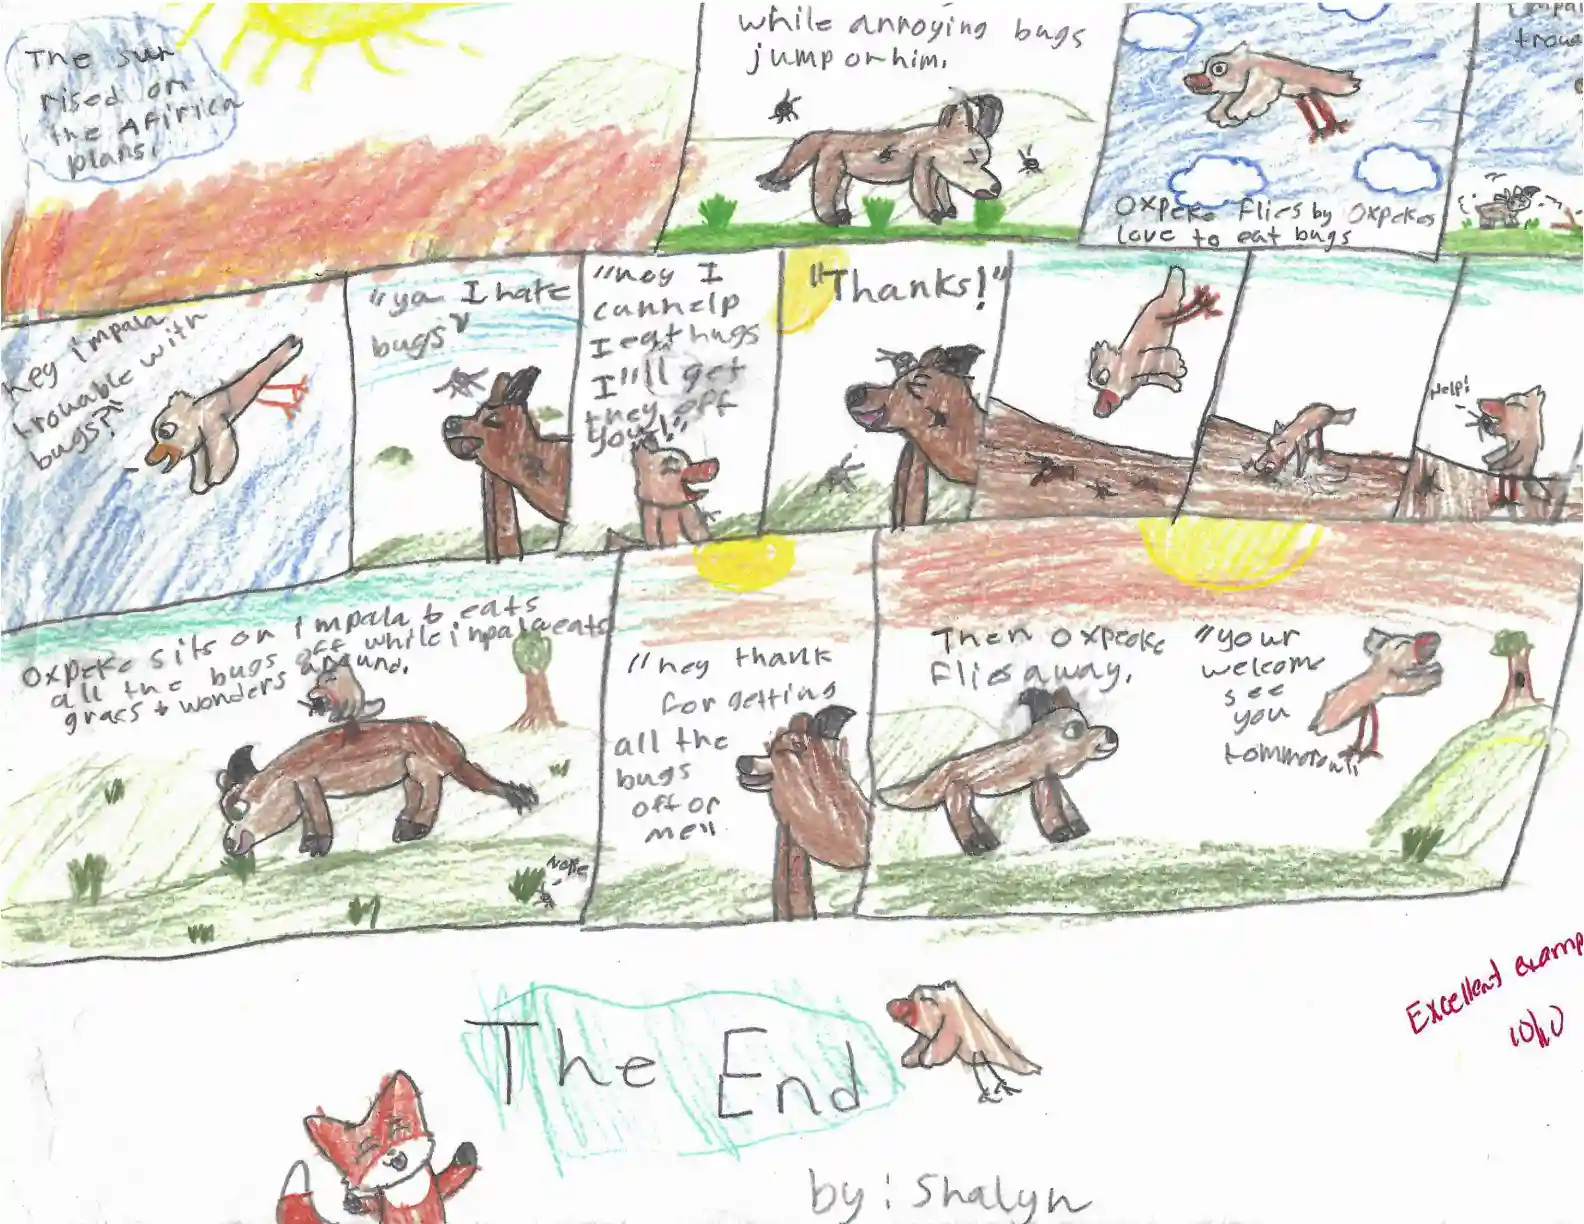 The sun
rised on
the Afirica
plans.
while annoying bugs
jump on him.
Oxpeke flies by Oxpekes
love to eat bugs
troua
hey impala
trouable with
bugs?"
"ya I hate
bugs"
"hey I
can help
I eat bugs
I'll get
they off
you!"
"Thanks!"
Help!
Oxpeke sits on impala & eats
all the bugs off while inpala eats
gracs + wonders around.
Nope
"hey thank
for getting
all the
bugs
off or
me"
Then Oxpeoke
flies away.
"your
welcome
see
you
tommorow"
The End
by: Shalyn
Excellent examp
10/10